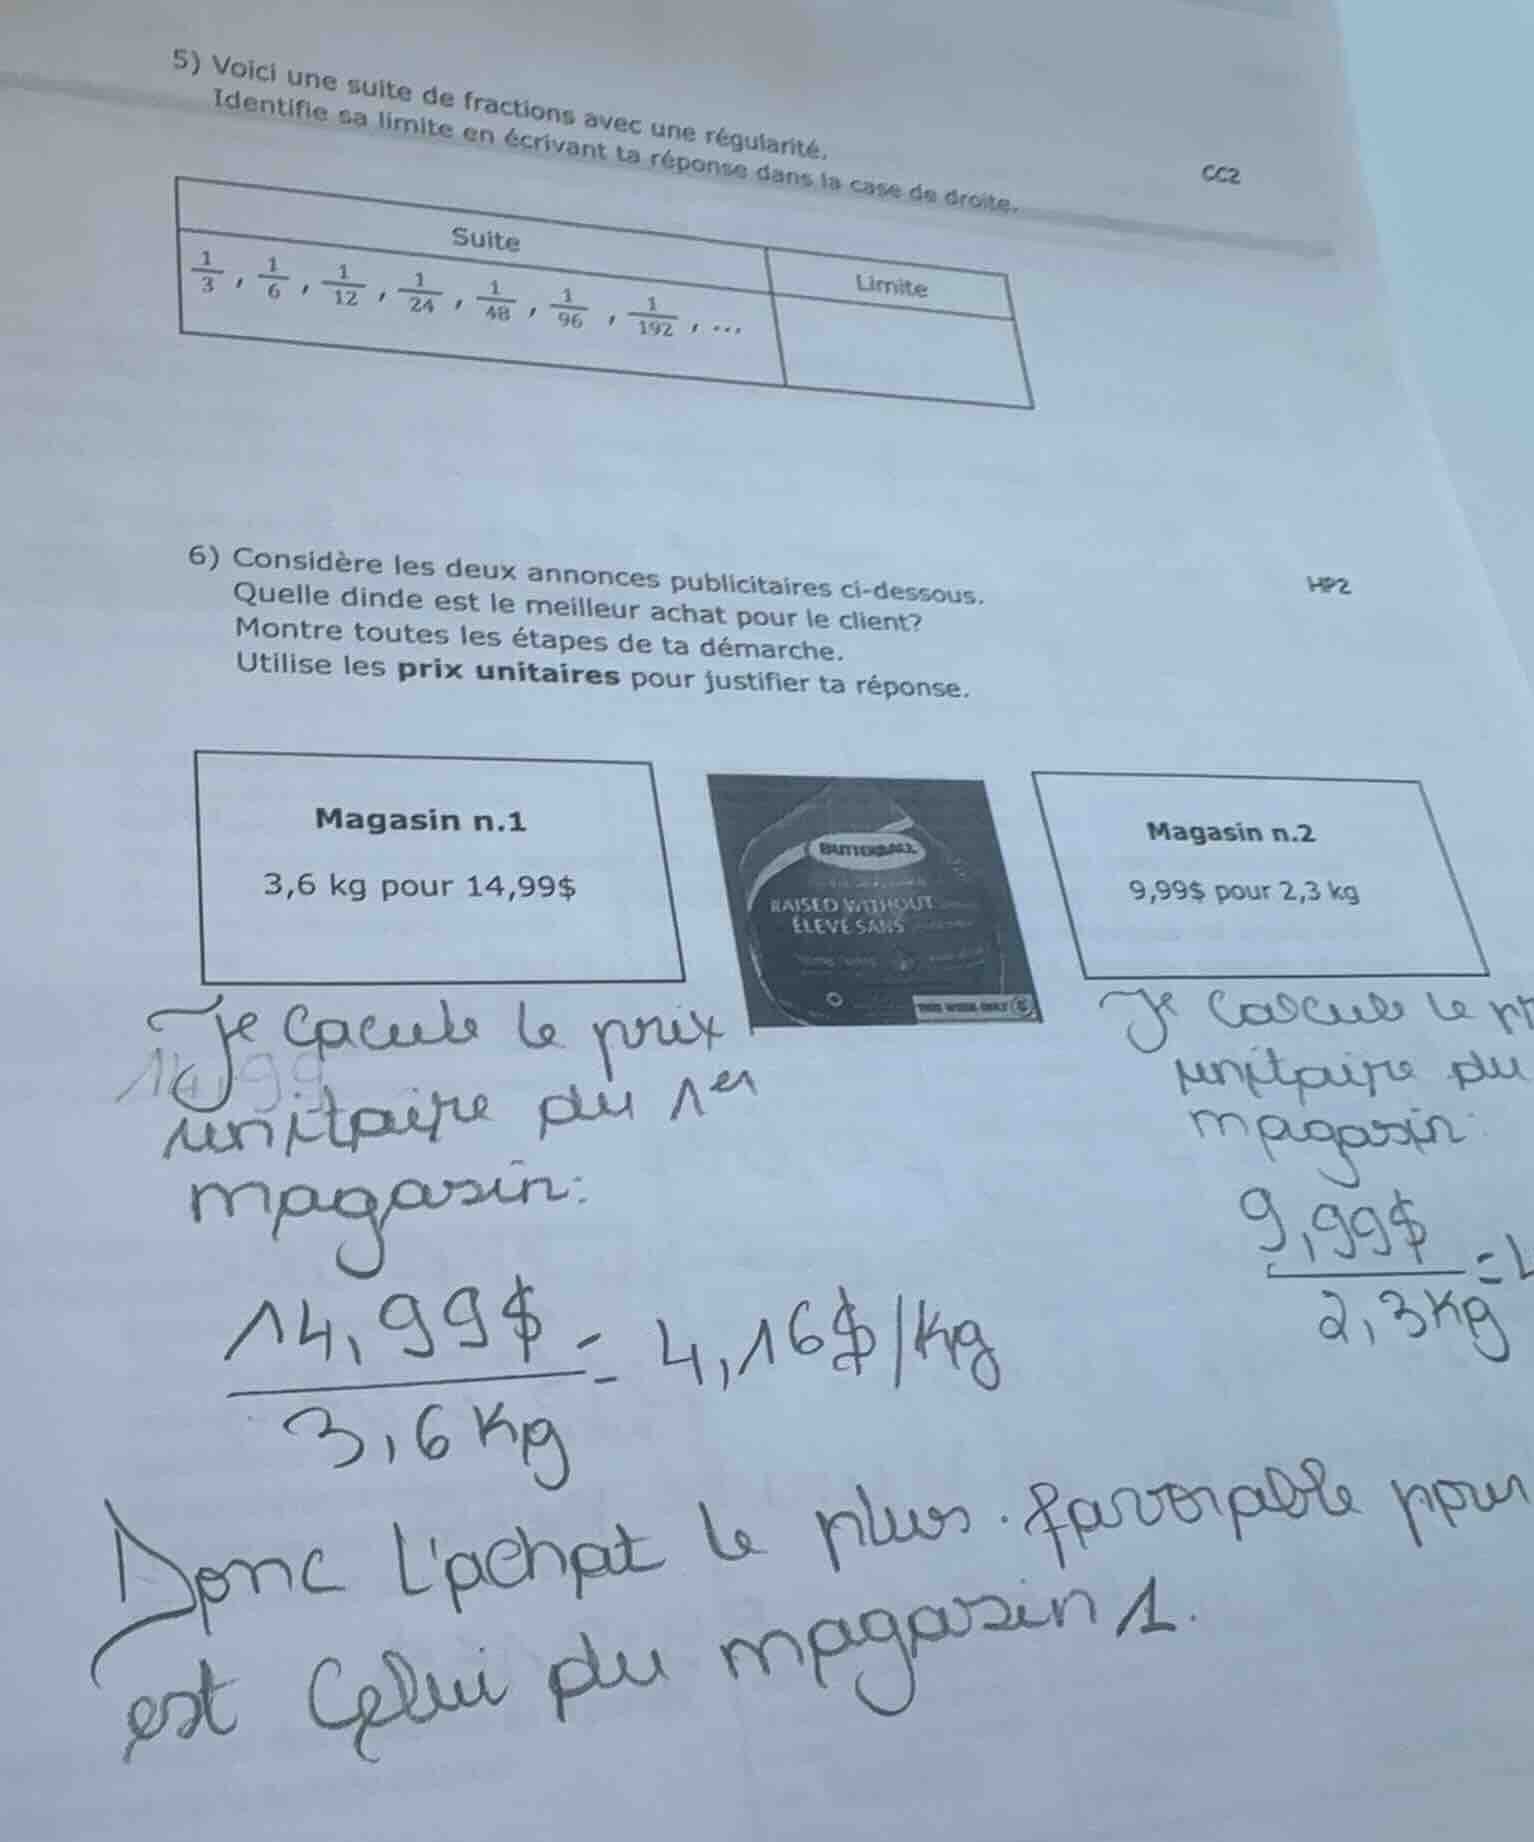 5) Voici une suite de fractions avec une régularité.
Identifie sa limite en écrivant ta réponse dans la case de droite.
CC2
Suite
Limite
1/3 , 1/6 , 1/12 , 1/24 , 1/48 , 1/96 , 1/192 , ...
6) Considère les deux annonces publicitaires ci-dessous.
HP2
Quelle dinde est le meilleur achat pour le client?
Montre toutes les étapes de ta démarche.
Utilise les prix unitaires pour justifier ta réponse.
Magasin n.1
3,6 kg pour 14,99$
BUTTERBALL
RAISED WITHOUT
ÉLEVÉ SANS
THIS WEEK ONLY
Magasin n.2
9,99$ pour 2,3 kg
Je cacule le prix
14,99
unitaire du 1er
magasin:
14,99$ / 3,6 kg = 4,16$/kg
Je calcule le
unitaire du
magasin:
9,99$ / 2,3 kg =
Donc l'achat le plus favorable pour
est celui du magasin 1.